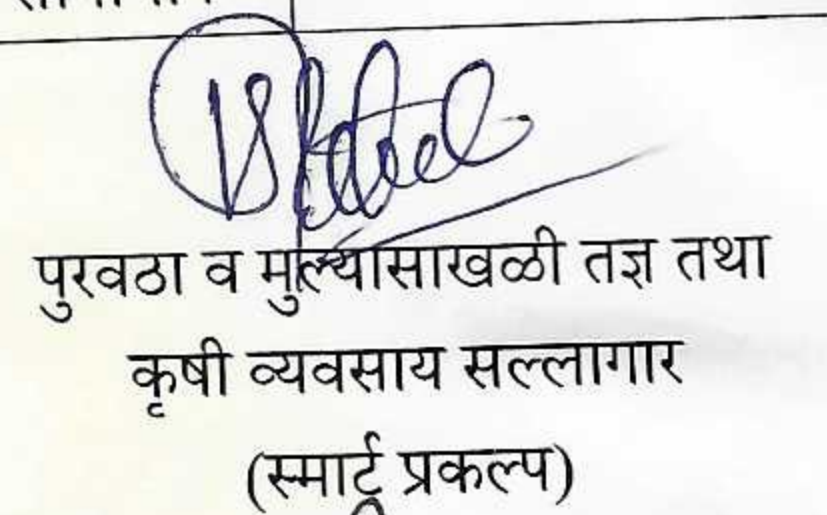 पुरवठा व मुल्यासाखळी तज्ञ तथा
कृषी व्यवसाय सल्लागार
(स्मार्ट प्रकल्प)